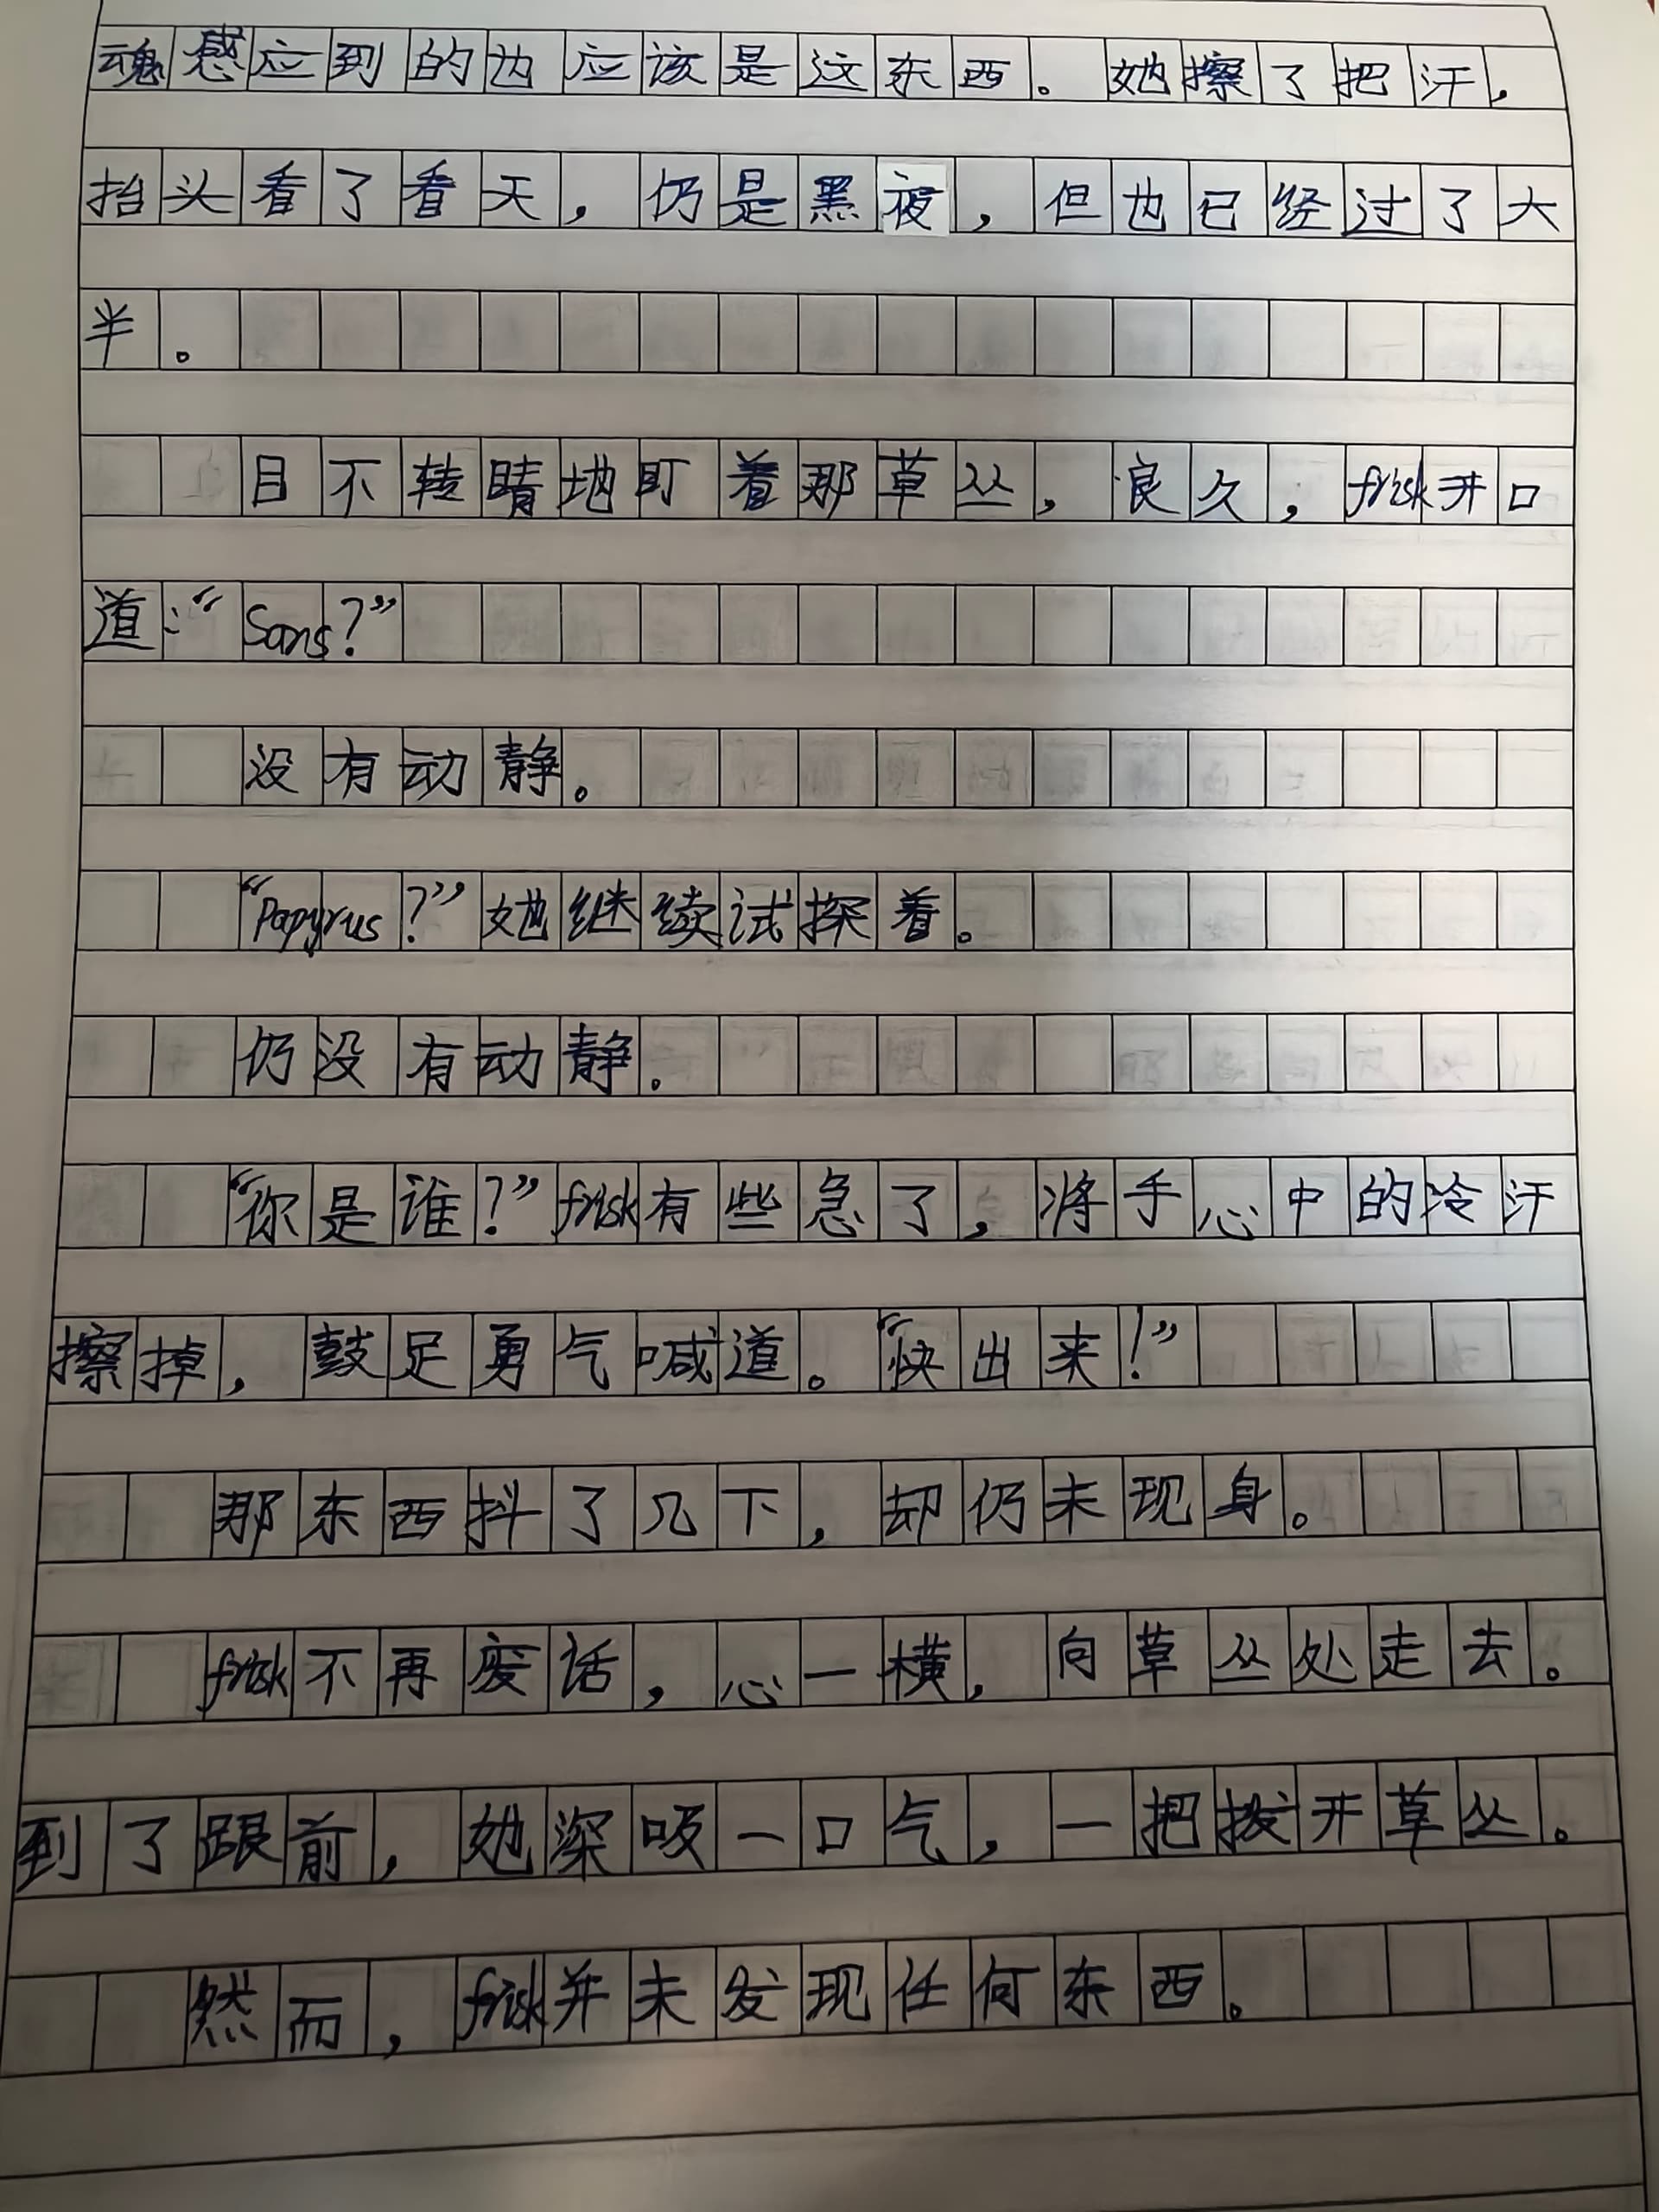 魂感应到的也应该是这东西。她擦了把汗，
抬头看了看天，仍是黑夜，但也已经过了大
半。
目不转睛地盯着那草丛，良久，frisk开口
道：“Sans？”
没有动静。
“Papyrus？”她继续试探着。
仍没有动静。
“你是谁？”frisk有些急了，将手心中的冷汗
擦掉，鼓足勇气喊道。“快出来！”
那东西抖了几下，却仍未现身。
frisk不再废话，心一横，向草丛处走去。
到了跟前，她深吸一口气，一把拨开草丛。
然而，frisk并未发现任何东西。